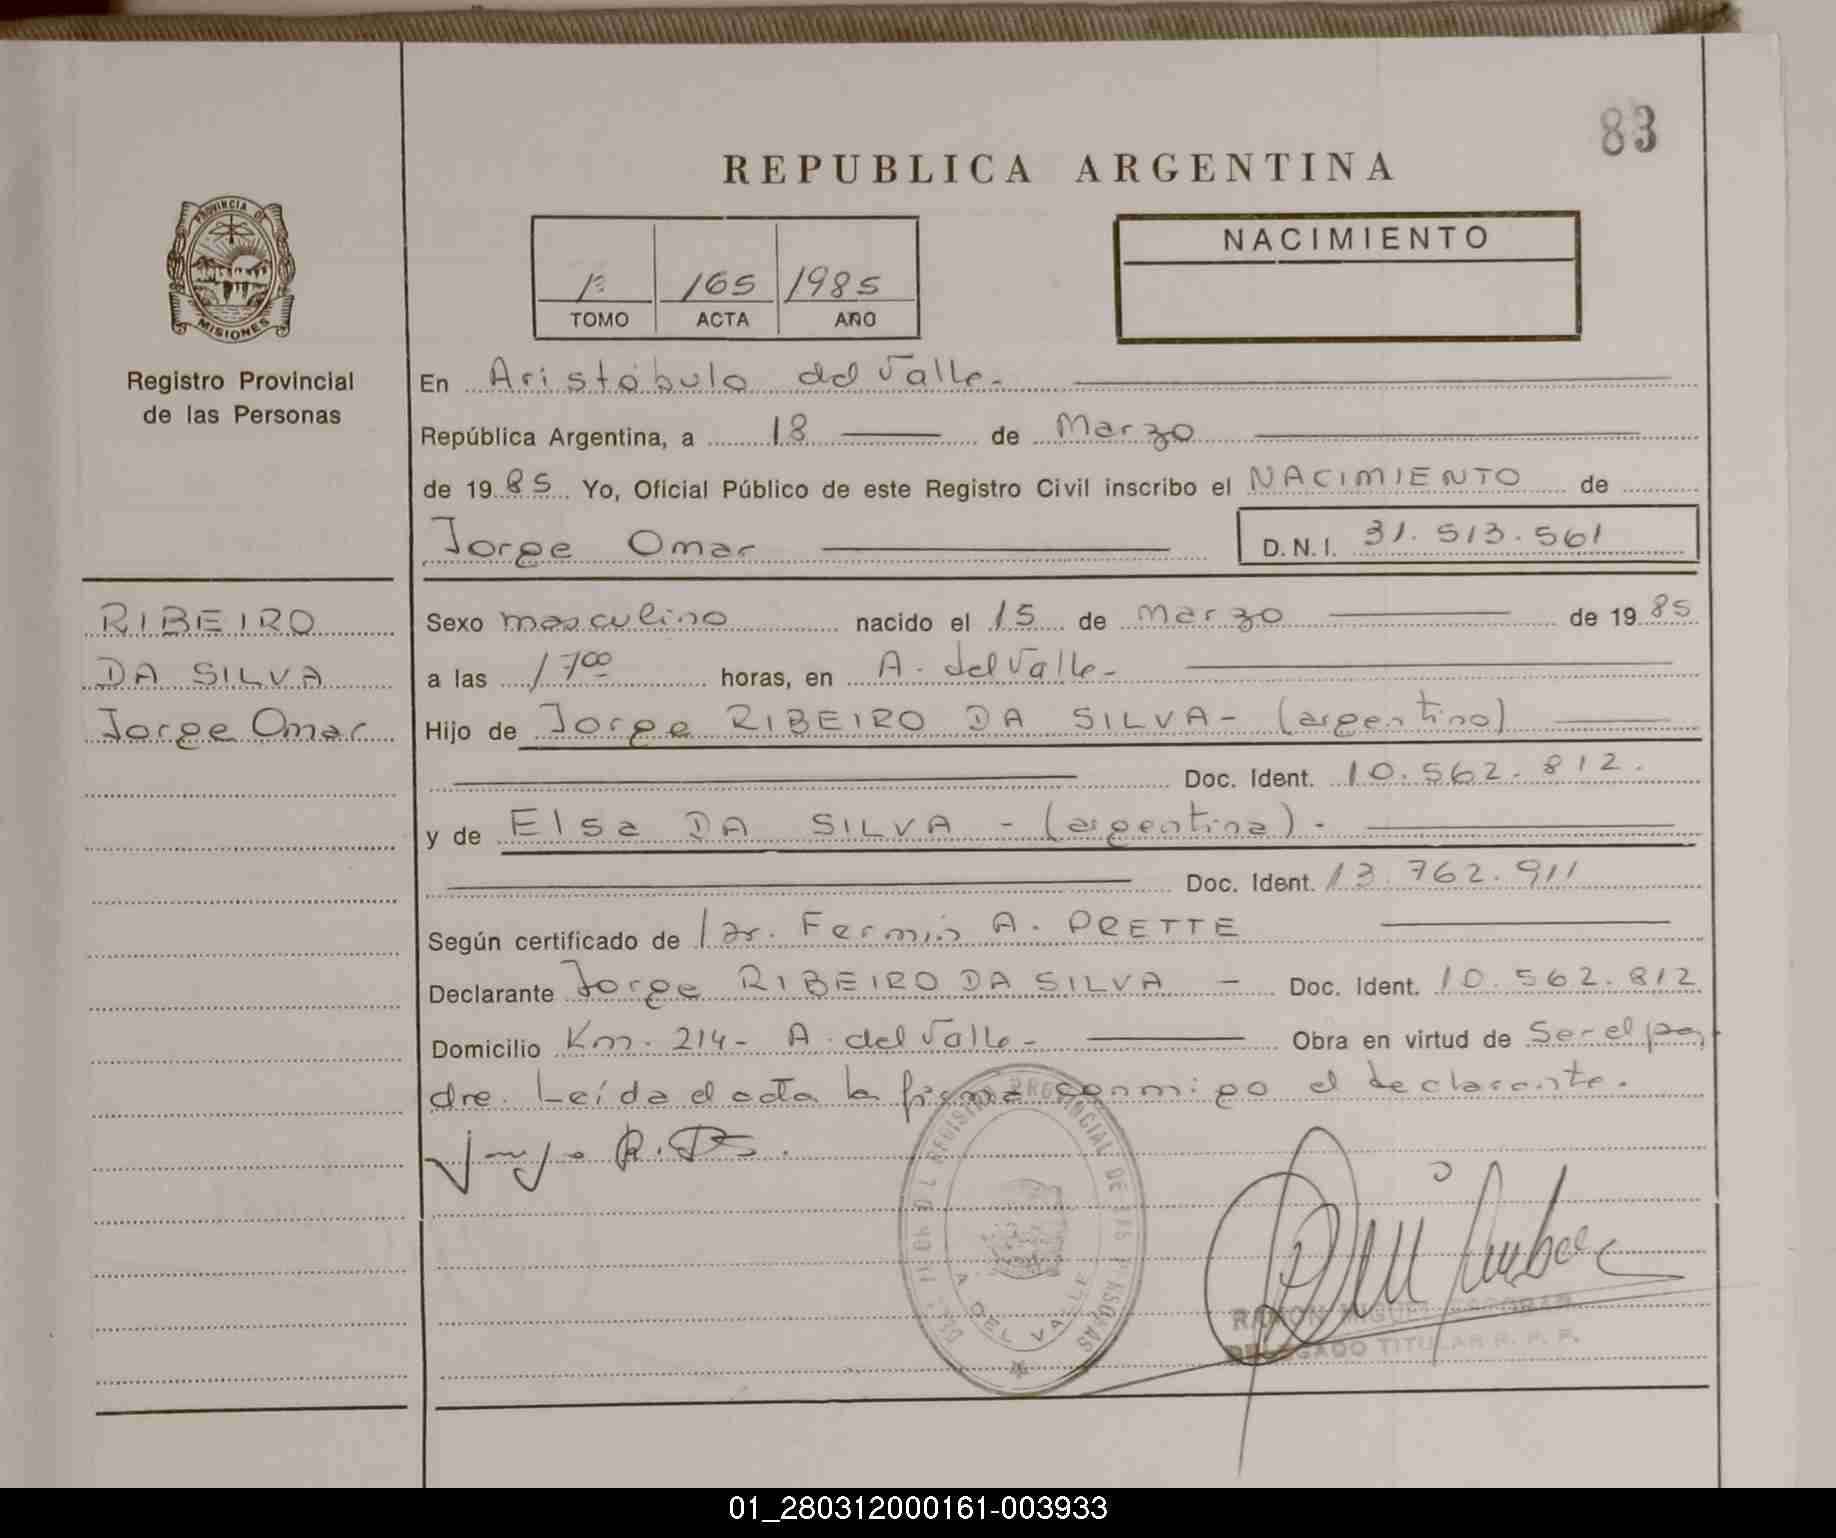 83
REPUBLICA ARGENTINA
PROVINCIA DE
MISIONES
Registro Provincial
de las Personas
1º 165 1985
TOMO ACTA AÑO
NACIMIENTO
En Aristóbulo del Valle.-
República Argentina, a 18 de Marzo
de 1985 Yo, Oficial Público de este Registro Civil inscribo el NACIMIENTO de
Jorge Omar D.N.I. 31.513.561
RIBEIRO
DA SILVA
Jorge Omar
Sexo masculino nacido el 15 de Marzo de 1985
a las 17°° horas, en A. del Valle.-
Hijo de Jorge RIBEIRO DA SILVA- (argentino)
Doc. Ident. 10.562.812.
y de Elsa DA SILVA - (argentina).
Doc. Ident. 13.762.911
Según certificado de Dr. Fermin A. PRETTE
Declarante Jorge RIBEIRO DA SILVA - Doc. Ident. 10.562.812
Domicilio Km. 214- A. del Valle- Obra en virtud de Ser el pa
dre. Leída el acta la firma conmigo el declarante.
REGISTRO PROVINCIAL DE LAS PERSONAS
A. DEL VALLE
RAMON MIGUEL
DELEGADO TITULAR R. P. P.
01_280312000161-003933